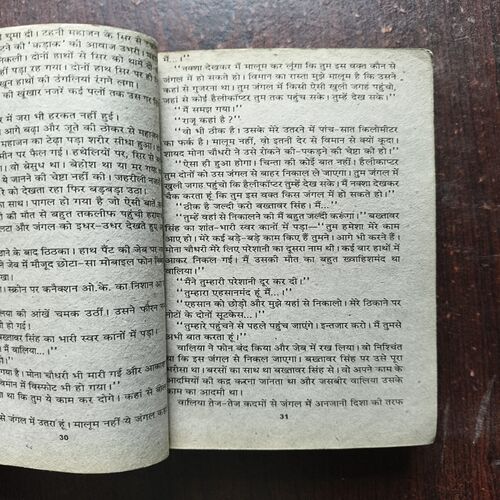 घुमा दी। टहनी महाजन के सिर से
टने की 'कड़ाक' की आवाज उभरी।
निकली। दोनों हाथों से सिर को थामे
पड़ा रह गया। दोनों हाथ सिर पर ही
खून हाथों की उंगलियां रंगने लगा।
की खूंखार नजरें कई पलों तक उस पर
में जरा भी हरकत नहीं हुई।
आगे बढ़ा और जूते की ठोकर से महाजन
महाजन का टेढ़ा पड़ा शरीर सीधा हुआ।
मीन पर फैल गईं। हथेलियों पर, सिर से
। वो बेसुध था। बेहोश था या मर गया,
ये जानने की चेष्टा नहीं की। जहरीली नजरों
को देखता रहा फिर बड़बड़ा उठा।
का साथ। पागल हो गया है जो ऐसी बातें
की मौत से बहुत तकलीफ पहुंची
लटा और जंगल को इधर-उधर देखते हुए
ढ़ाने के बाद ठिठका। हाथ पैंट की जेब पर
ने जेब में मौजूद छोटा-सा मोबाइल फोन
। स्क्रीन पर कनैक्शन ओ.के. का निशान
लया की आंखें चमक उठीं। उसने फौरन
हो गई।
ख्तावर सिंह का भारी स्वर कानों में पड़ा।
मैं वालिया...।''
गया है। मोना चौधरी भी मारी गई और
विमान में विस्फोट भी हो गया।''
था कि तुम ये काम कर दोगे। कहां से
से जंगल में उतरा हूं। मालूम नहीं ये जंगल
30
मैं...।''
''नक्शा देखकर मैं मालूम कर लूंगा कि तुम इस वक्त कौन से
जंगल में हो सकते हो। विमान का रास्ता मुझे मालूम है कि उसने
कहां से गुजरना था। तुम जंगल में किसी ऐसी खुली जगह पहुंचो,
जहां से कोई हैलीकॉप्टर तुम तक पहुंच सके। तुम्हें देख सके।''
''मैं समझ गया।''
''राजू कहां है?''
''वो भी ठीक है। उसके मेरे उतरने में पांच-सात किलोमीटर
का फर्क है। मालूम नहीं, वो इतनी देर से विमान से क्यों कूदा।
शायद मोना चौधरी ने उसे रोकने की-पकड़ने की चेष्टा की हो।''
''ऐसा ही हुआ होगा। चिन्ता की कोई बात नहीं। हैलीकॉप्टर
तुम दोनों को उस जंगल से बाहर निकाल ले जाएगा। तुम जंगल में
खुली जगह पहुंचो कि हैलीकॉप्टर तुम्हें देख सके। मैं नक्शा देखकर
चैक करता हूं कि तुम इस वक्त किस जंगल में हो सकते हो।''
''ठीक है जल्दी करो बख्तावर सिंह मैं...।''
''तुम्हें वहां से निकालने की मैं बहुत जल्दी करूंगा।'' बख्तावर
सिंह का शांत-भारी स्वर कानों में पड़ा—''तुम हमेशा मेरे काम
आए हो। मेरे कई बड़े-बड़े काम किए हैं तुमने। आगे भी करने हैं।
मोना चौधरी मेरे लिए परेशानी का दूसरा नाम थी। कई बार हाथों में
आकर निकल गई। मैं उसकी मौत का बहुत ख्वाहिशमंद था
वालिया।''
''मैंने तुम्हारी परेशानी दूर कर दी।''
''तुम्हारा एहसानमंद हूं मैं...।''
''एहसान को छोड़ो और मुझे यहां से निकालो। मेरे ठिकाने पर
नोटों के दोनों सूटकेस...।''
''तुम्हारे पहुंचने से पहले पहुंच जाएंगे। इन्तजार करो। मैं तुमसे
अभी बात करता हूं।''
वालिया ने फोन बंद किया और जेब में रख लिया। वो निश्चिंत
था कि इस जंगल से निकल जाएगा। बख्तावर सिंह पर उसे पूरा
भरोसा था। बरसों का साथ था बख्तावर सिंह से। वो अपने काम के
आदमियों की कद्र करना जानता था और जसबीर वालिया उसके
काम का आदमी था।
वालिया तेज-तेज कदमों से जंगल में अनजानी दिशा की तरफ
31